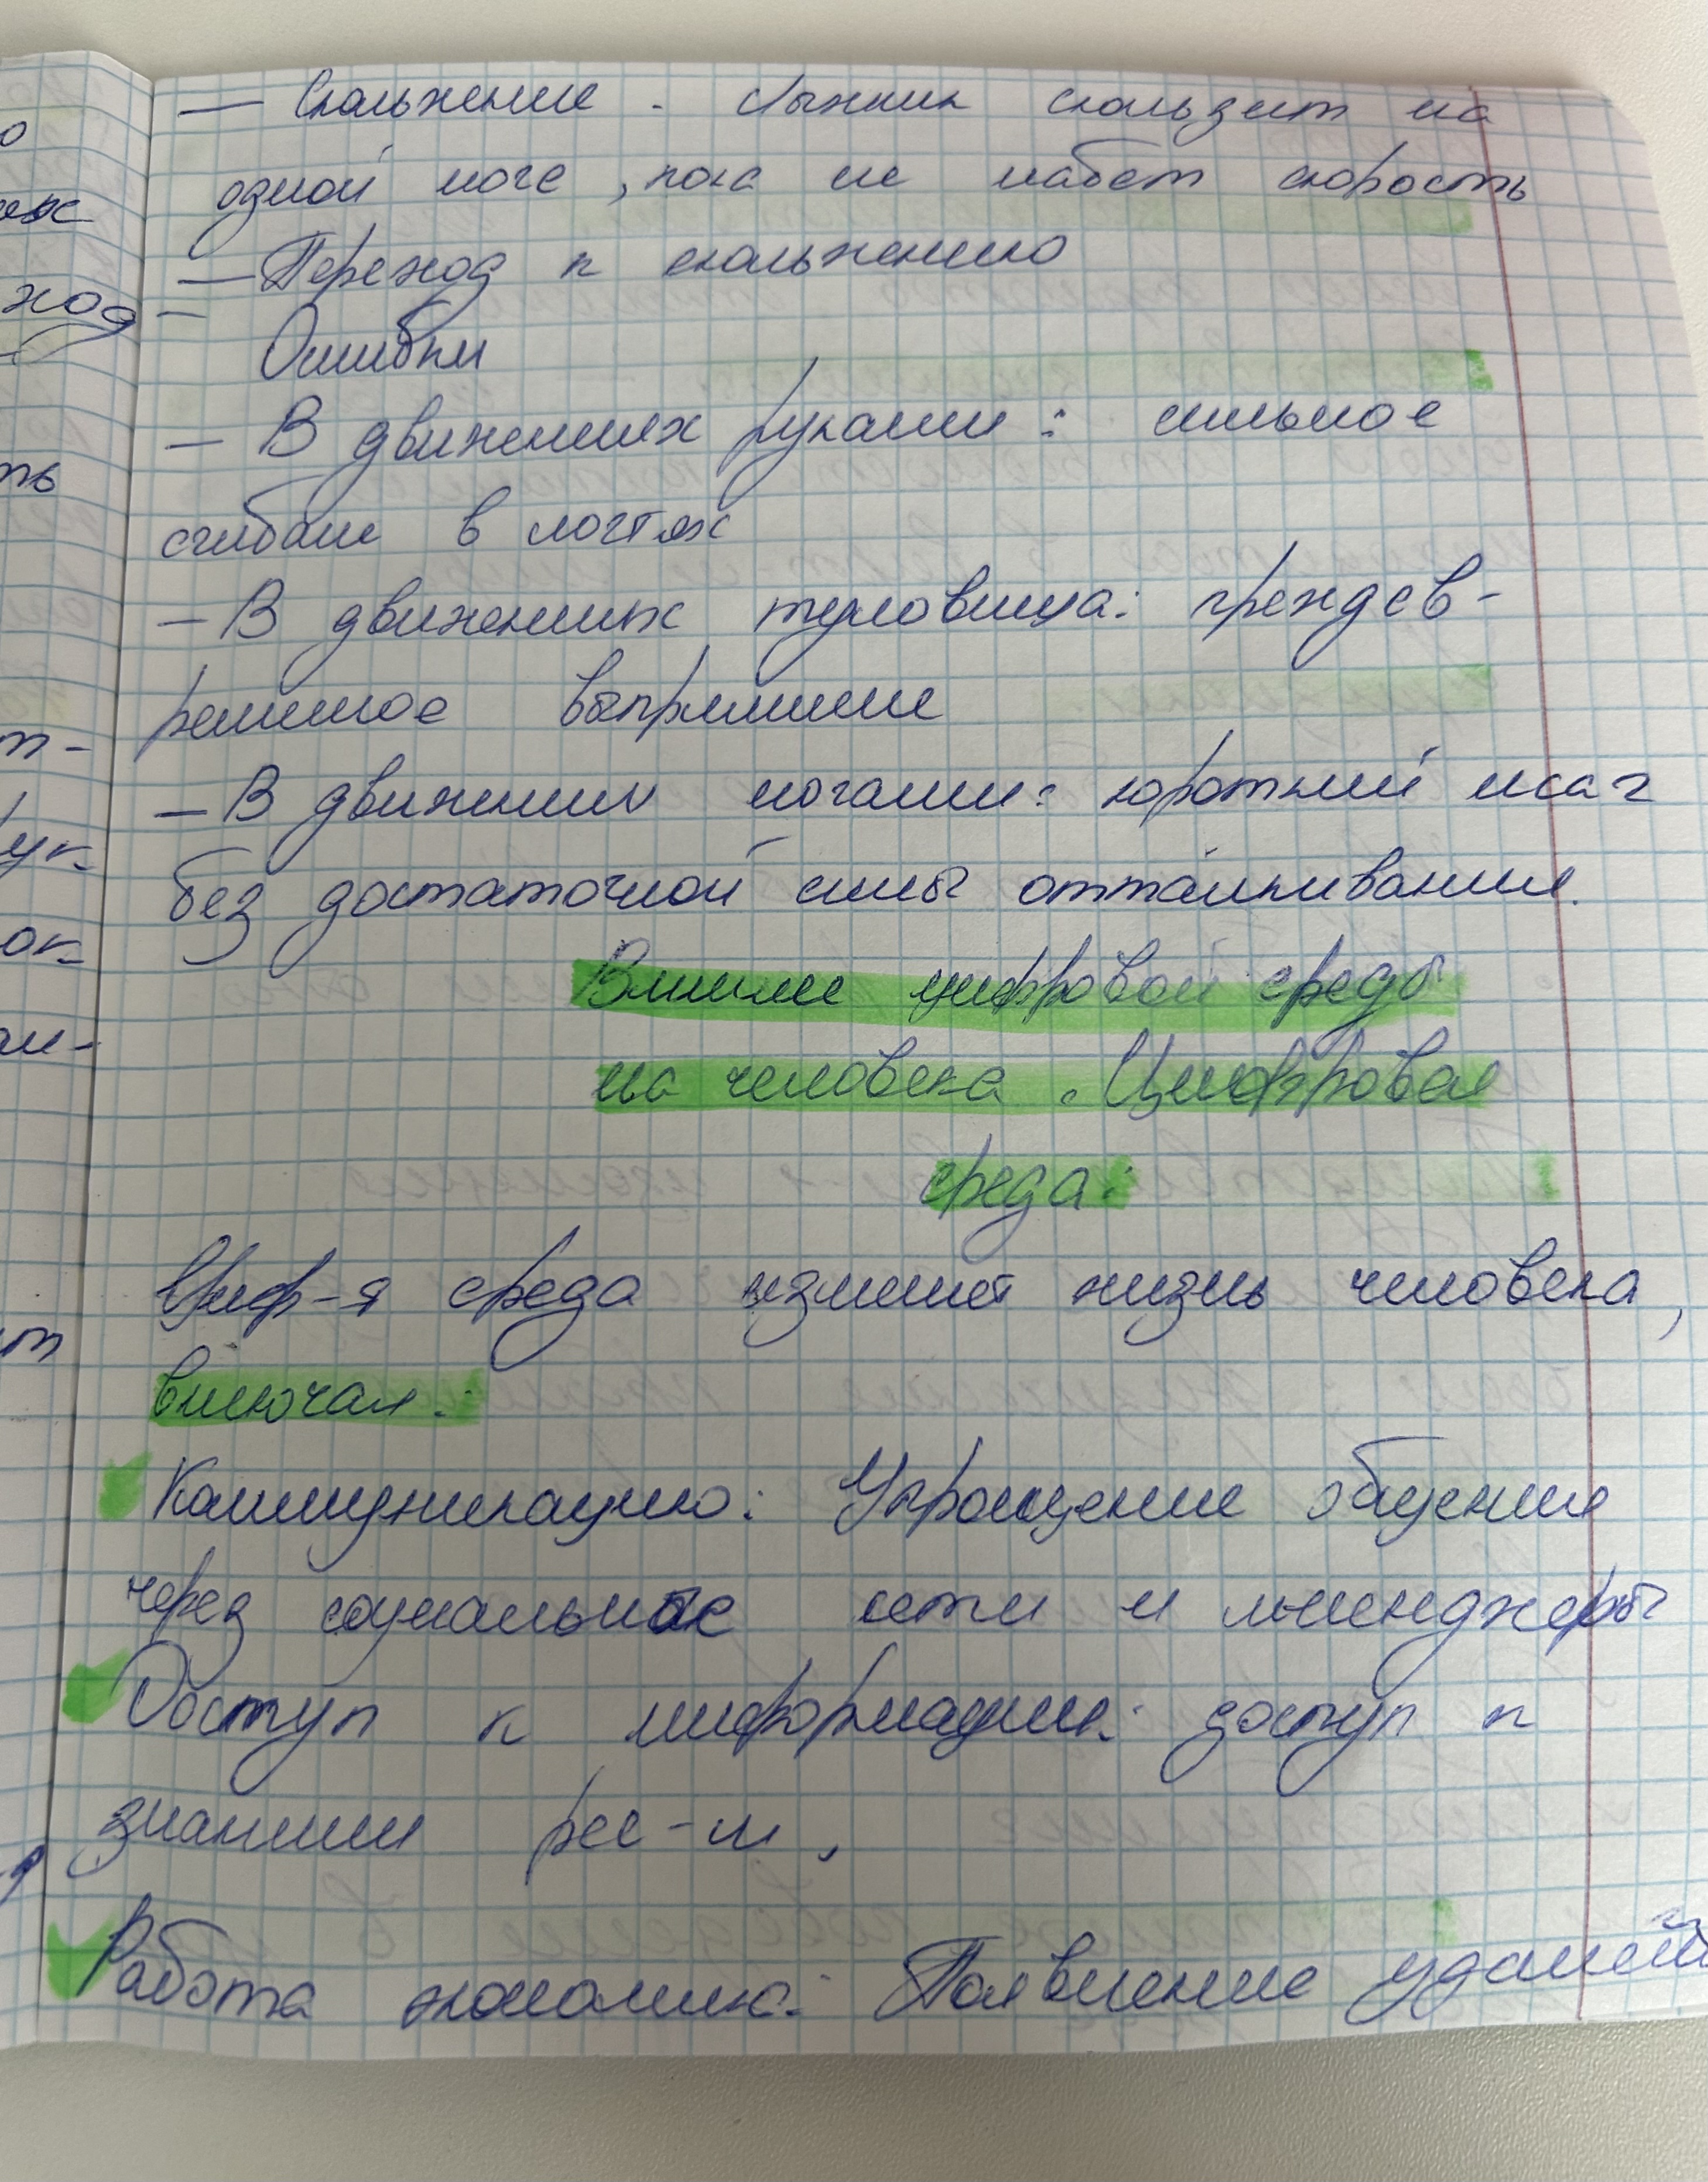 — Скольжение. Лыжник скользит на
одной ноге, пока не набет скорость
— Переход к скольжению
Ошибки
— В движениях руками: сильное
сгибание в локтях
— В движениях туловища: преждев-
ременное выпрямление
— В движении ногами: короткий шаг
без достаточной силы отталкивания.
Влияние цифровой среды
на человека. Цифровая
среда:
Циф-я среда изменяет жизнь человека,
включая:
Коммуникацию: Упрощение общения
через социальные сети и
Доступ к информации: доступ к
знаниям
Работа экономика: Появление удалённой